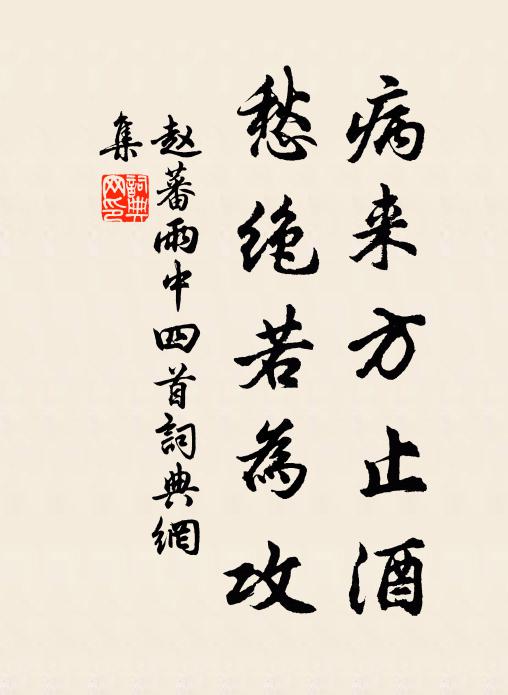 病来方止酒
愁绝若為攻
赵蕃雨中四首詞典網
集
詞典網印